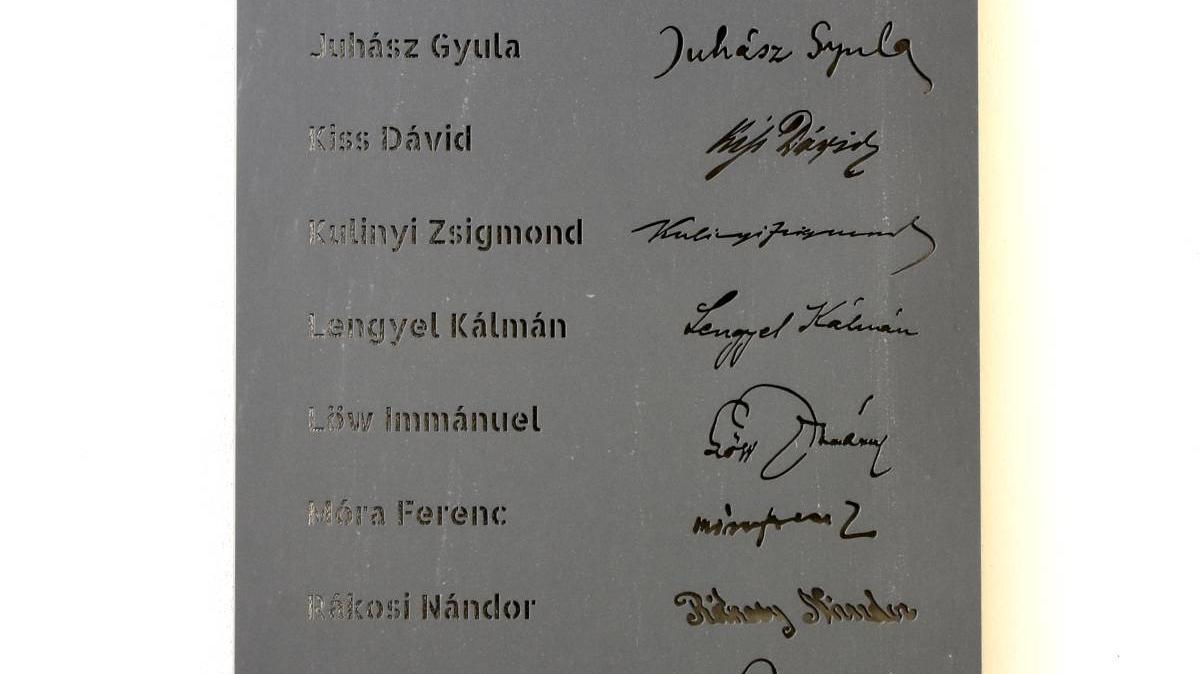 Juhász Gyula Juhász Gyula
Kiss Dávid Kiss Dávid
Kulinyi Zsigmond Kulinyi Zsigmond
Lengyel Kálmán Lengyel Kálmán
Löw Immánuel Löw
Móra Ferenc
Rákosi Nándor Nándor